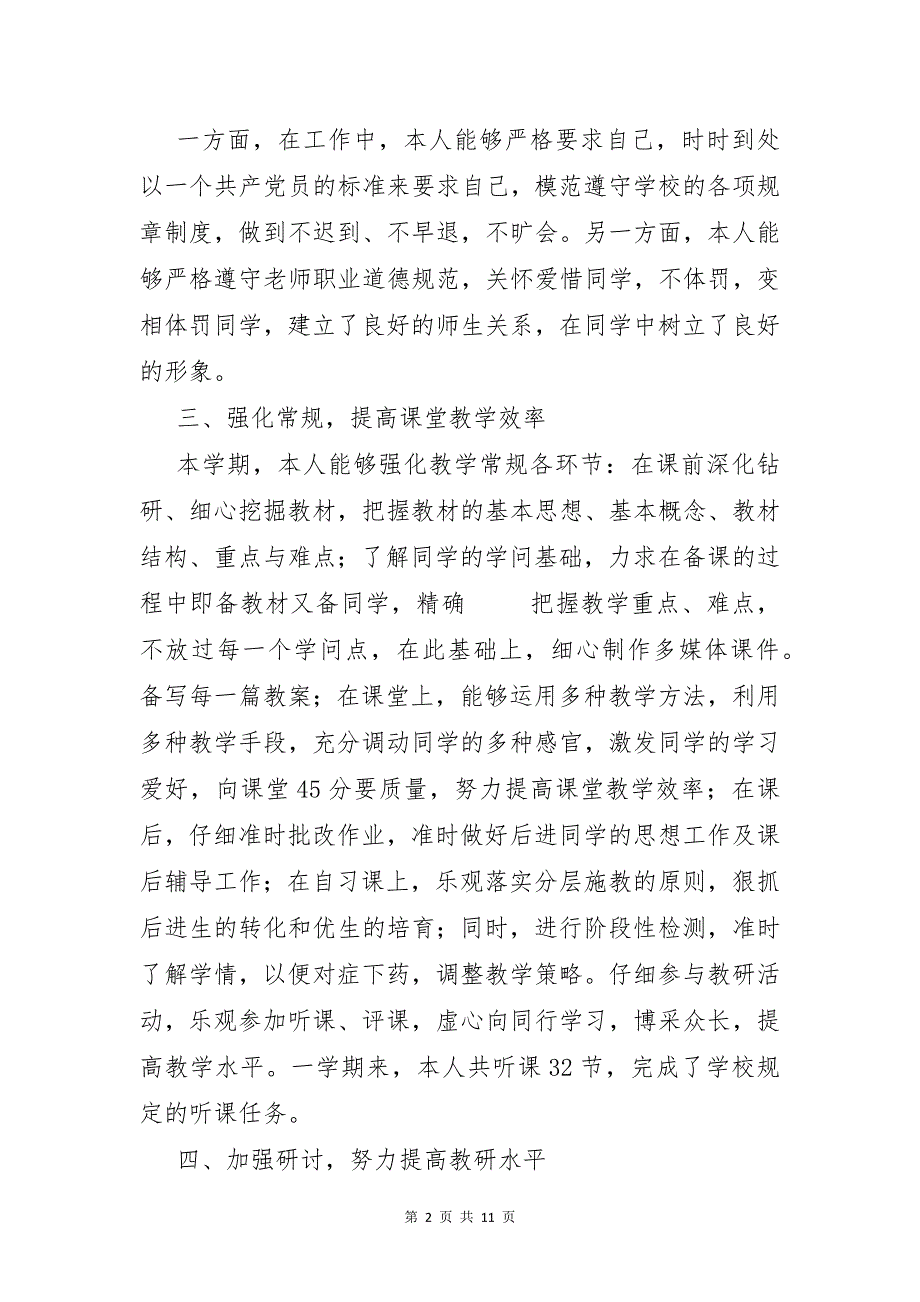 一方面，在工作中，本人能够严格要求自己，时时到处
以一个共产党员的标准来要求自己，模范遵守学校的各项规
章制度，做到不迟到、不早退，不旷会。另一方面，本人能
够严格遵守老师职业道德规范，关怀爱惜同学，不体罚，变
相体罚同学，建立了良好的师生关系，在同学中树立了良好
的形象。
三、强化常规，提高课堂教学效率
本学期，本人能够强化教学常规各环节：在课前深化钻
研、细心挖掘教材，把握教材的基本思想、基本概念、教材
结构、重点与难点；了解同学的学问基础，力求在备课的过
程中即备教材又备同学，精确 把握教学重点、难点，
不放过每一个学问点，在此基础上，细心制作多媒体课件。
备写每一篇教案；在课堂上，能够运用多种教学方法，利用
多种教学手段，充分调动同学的多种感官，激发同学的学习
爱好，向课堂 45 分要质量，努力提高课堂教学效率；在课
后，仔细准时批改作业，准时做好后进同学的思想工作及课
后辅导工作；在自习课上，乐观落实分层施教的原则，狠抓
后进生的转化和优生的培育；同时，进行阶段性检测，准时
了解学情，以便对症下药，调整教学策略。仔细参与教研活
动，乐观参加听课、评课，虚心向同行学习，博采众长，提
高教学水平。一学期来，本人共听课 32 节，完成了学校规
定的听课任务。
四、加强研讨，努力提高教研水平
第 2 页 共 11 页